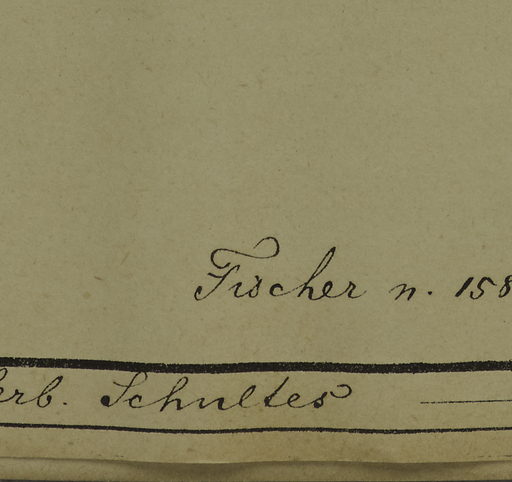 Fischer n. 158
erb. Schultes